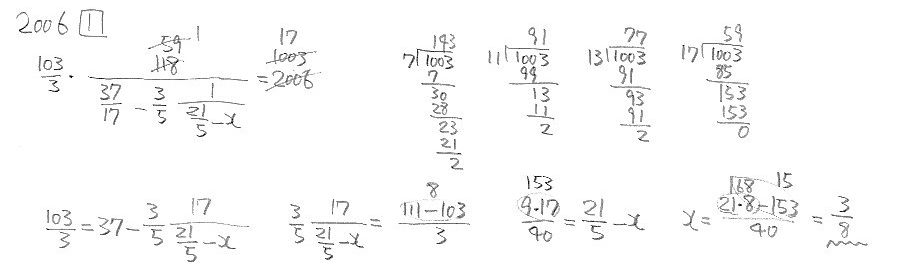 2006 1
103/3 · (59 1 118)/(37/17 − 3/5 · 1/(21/5 − x)) = 17 1003 2006
143
7)1003
7
30
28
23
21
2
91
11)1003
99
13
11
2
77
13)1003
91
93
91
2
59
17)1003
85
153
153
0
103/3 = 37 − 3/5 · 17/(21/5 − x)
3/5 · 17/(21/5 − x) = (111 − 103)/3 8
153 9·17/40 = 21/5 − x
x = (21·8 − 153)/40 = 3/8 168 15